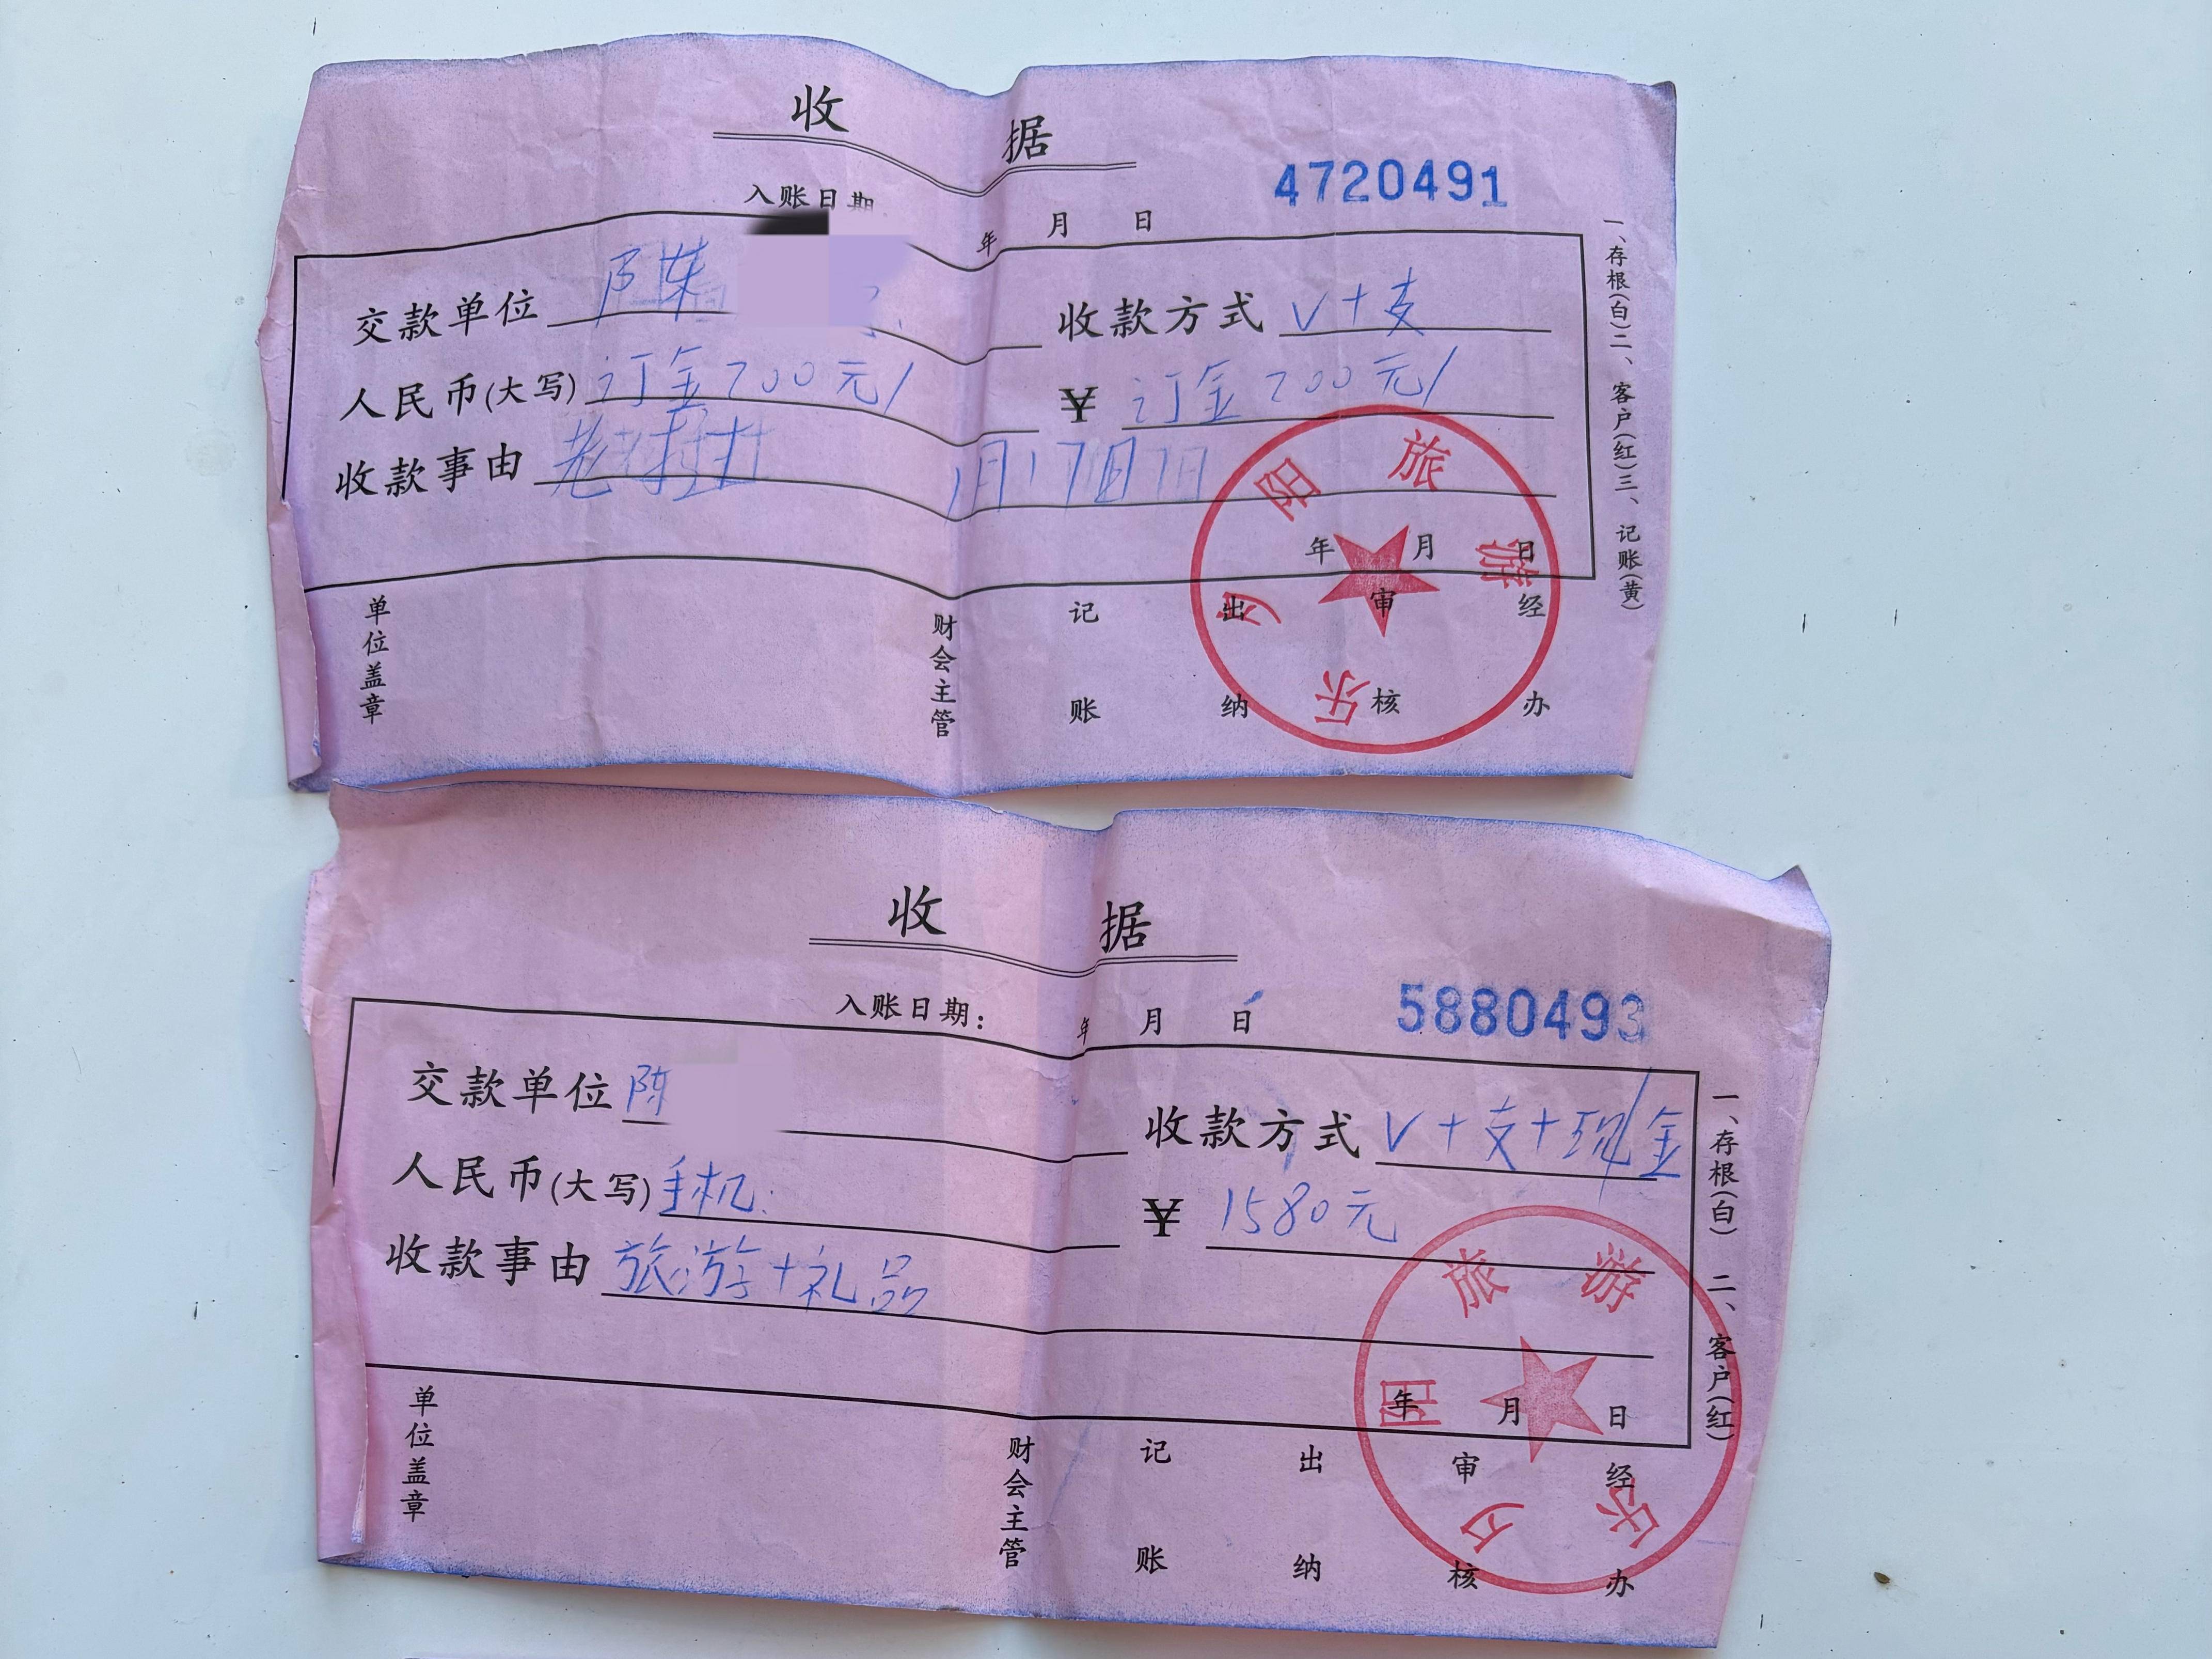 收 据
4720491
入账日期 年 月 日
交款单位 陈 收款方式 V+支
人民币(大写) 订金200元/ ¥ 订金200元/
收款事由 1月17日
年 月 日
单位盖章 财会主管 记账 出纳 审核 经办
一、存根(白)二、客户(红)三、记账(黄)
乐万田旅游
收 据
5880493
入账日期: 年 月 日
交款单位 陈 收款方式 V+支+现金
人民币(大写) 手机: ¥ 1580元
收款事由 旅游+礼品
年 月 日
单位盖章 财会主管 记账 出纳 审核 经办
一、存根(白) 二、客户(红)
乐万田旅游